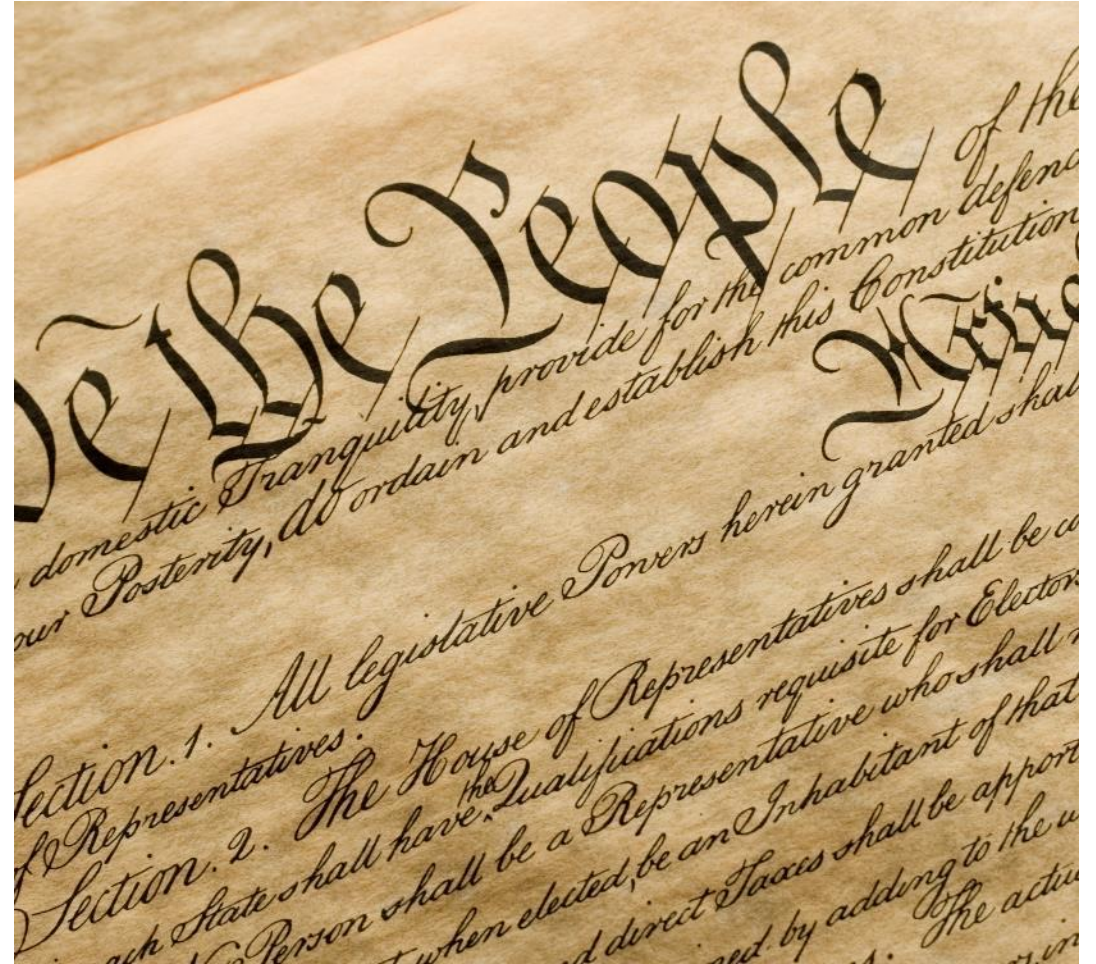 We the People of the
domestic Tranquility, provide for the common defenc
our Posterity, do ordain and establish this Constitution
Article
Section. 1. All legislative Powers herein granted shall
of Representatives.
Section. 2. The House of Representatives shall be co
each State shall have the Qualifications requisite for Electors
No Person shall be a Representative who shall n
when elected, be an Inhabitant of that
d direct Taxes shall be apport
ned by adding to the w
s. The actu